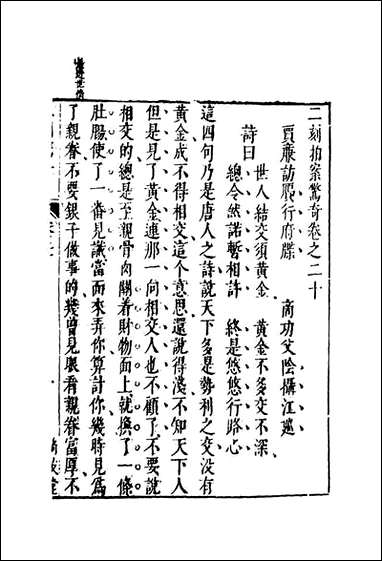 二刻拍案驚奇卷之二十
賈廉訪贋行府牒　商功父陰攝江巡
詩曰
世人結交須黃金　黃金不多交不深
總令然諾暫相許　終是悠悠行路心
這四句乃是唐人之詩說天下多是勢利之交沒有
黃金成不得相交這個意思還說得淺不知天下人
但是見了黃金連那一向相交人也不顧了不要說
相交的總是至親骨肉關着財物面上就換了一條
肚腸使了一番見識當面來弄你算計你幾時見為
了親眷不要銀子做事的幾曾見眼看親眷富厚不